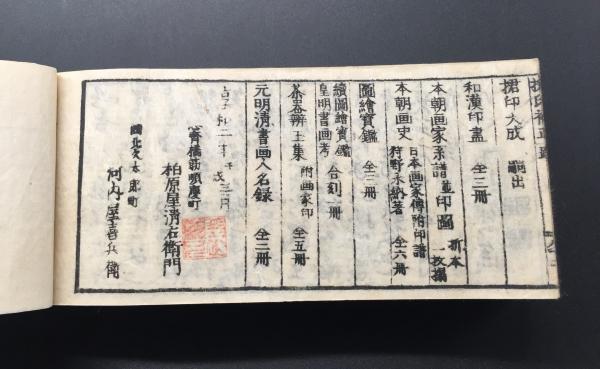 捃印大成 嗣出
和漢印盡 全三冊
本朝画家系譜並印圖 新本一枚摺
本朝画史 日本画家傳附印譜 狩野永納著 全六冊
圖繪寳鑑 全三冊
續圖繪寳鑑
皇明書画考 合刻一冊
茶器辨玉集 附画家印 全五冊
元明清書画人名録 全二冊
享和二年 戌三月
心斎橋筋順慶町
柏原屋清右衛門
同北久太郎町
河内屋喜兵衛